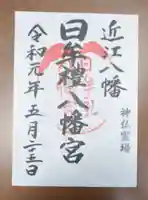 近江八幡
神仏霊場
日牟禮八幡宮
令和元年五月二十五日